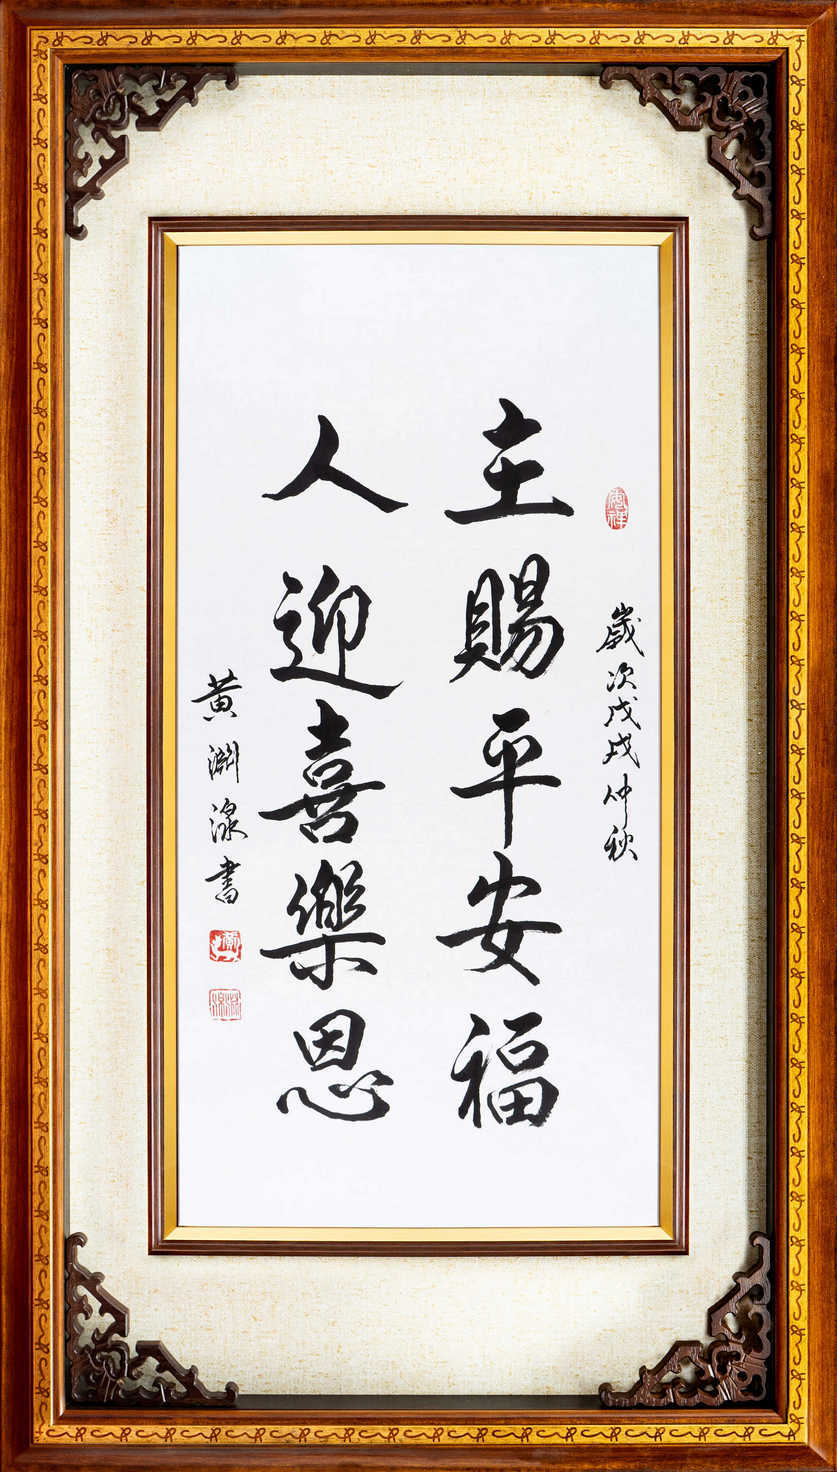 歲次戊戌仲秋
主賜平安福
人迎喜樂恩
黃淵湶書